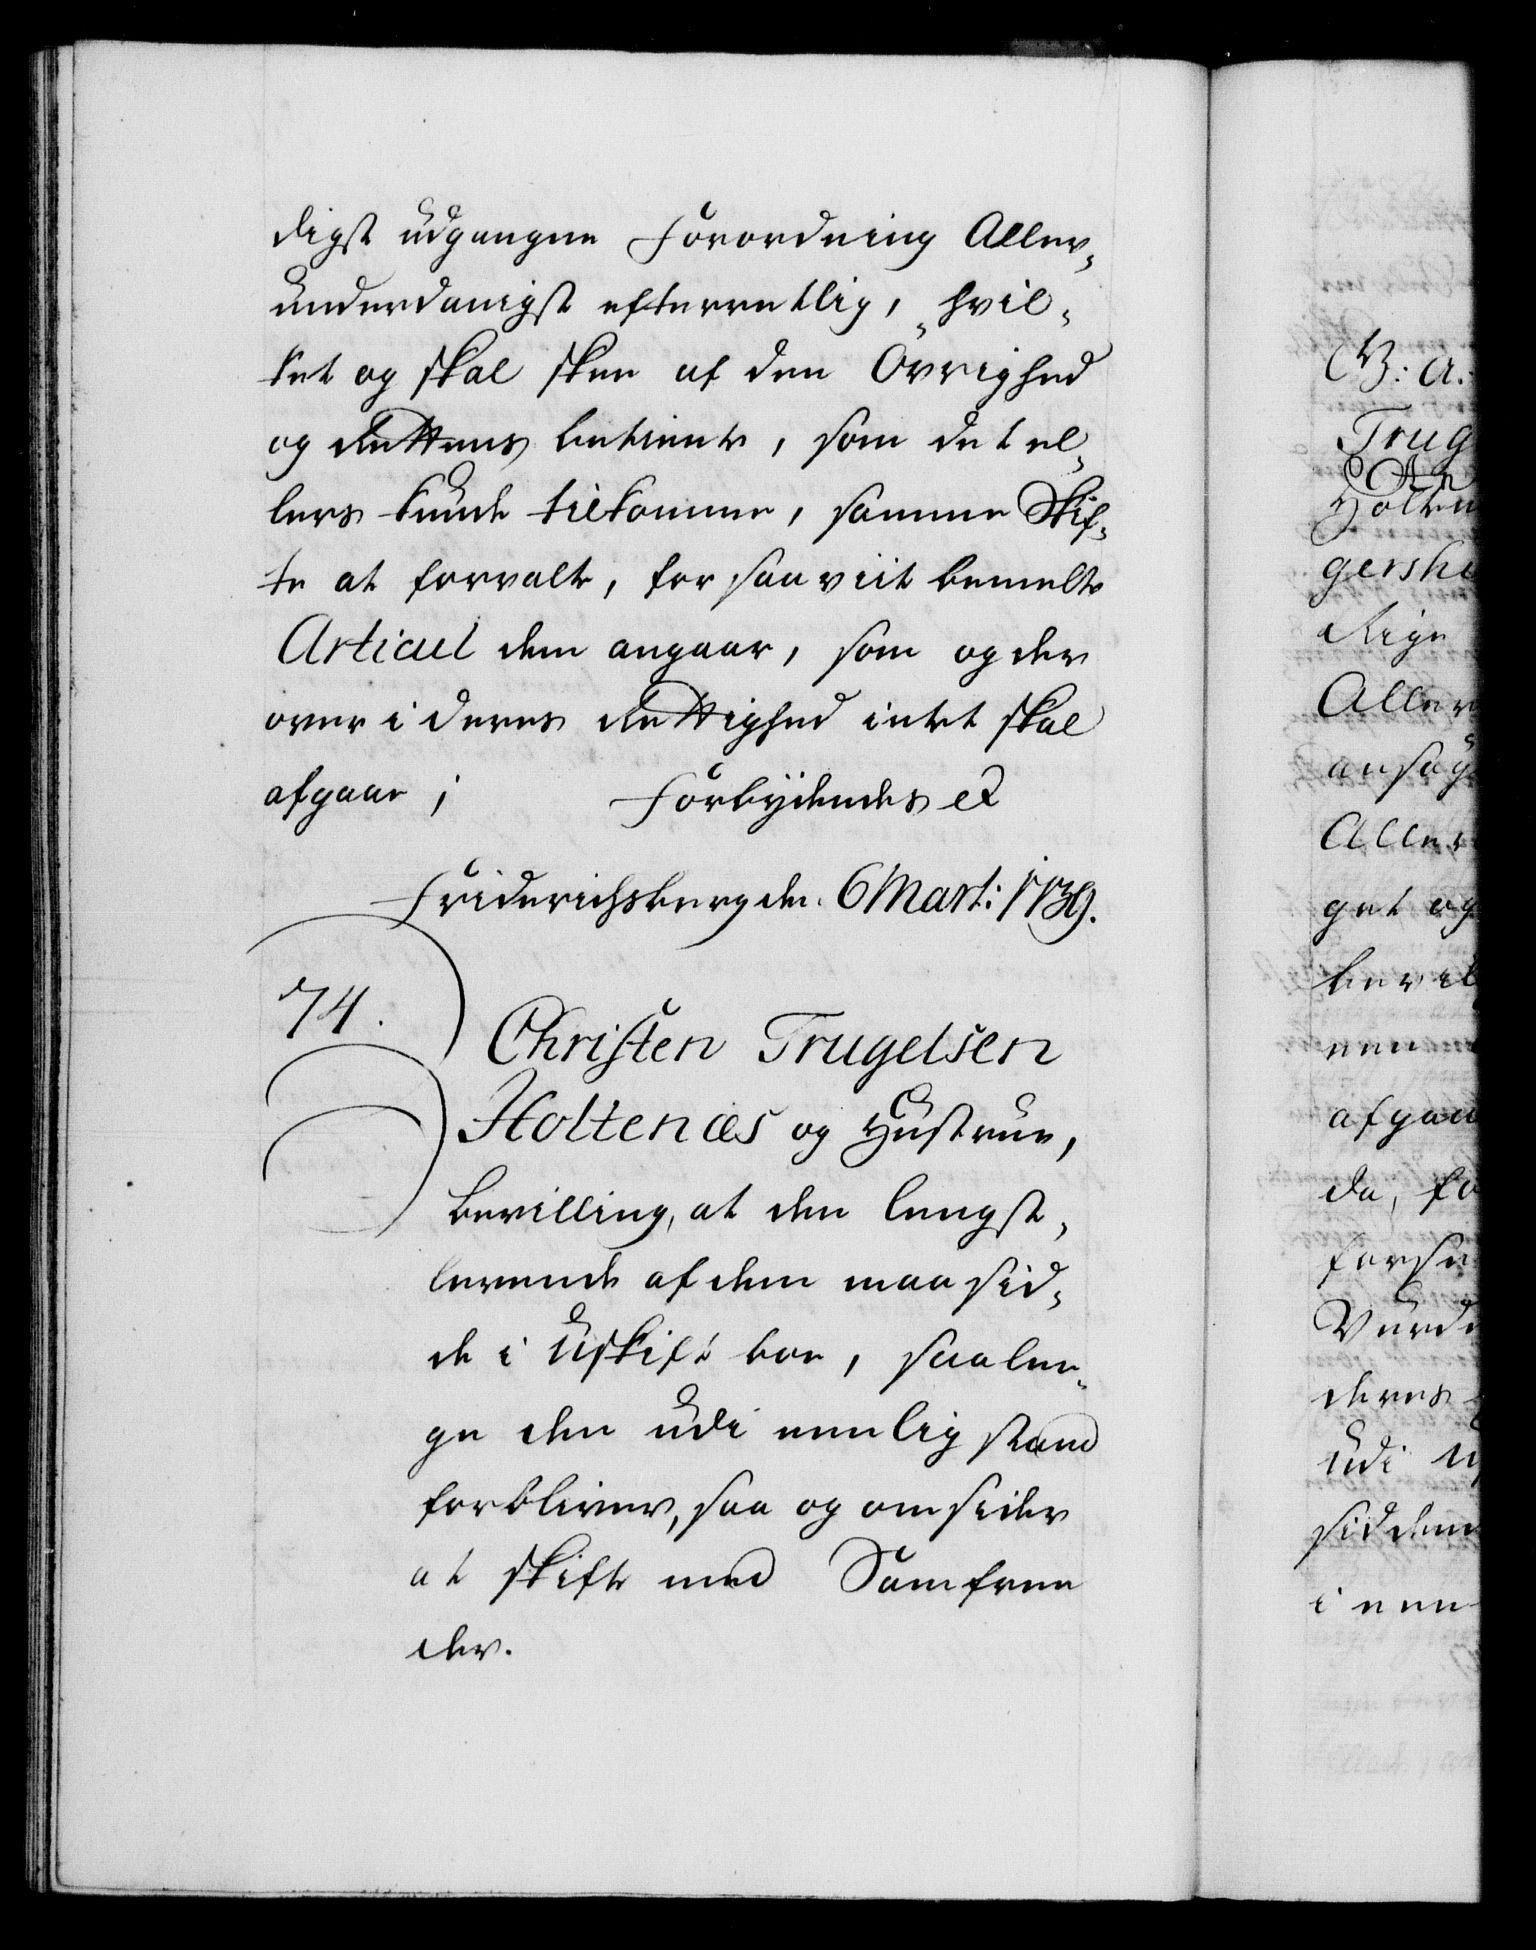 digst udgangne Forordning Aller-
underdanigst efterretlig, hvil-
ket og skal skee af den Øvrighed
og Rettens betiente, som det el-
lers kunde tilkomme, samme Skif-
te at forvalte, for saa viit bemelte
Articul dem angaar, som og der
over i deres Rettighed intet skal
afgaae; Forbydendes et
Friderichsberg den 6 Mart: 1739.
74.
Christen Trugelsen
Holtenæs og Hustrue,
bevilling, at den lengst-
levende af dem maa sid-
de i Uskift boe, saa len-
ge den udi eenlig stand
forbliver, saa og omsider
at skifte med Samfren
der.
G: A:
Trug
Holten
gershe
dige
Aller
ansøg
Aller
get og
bevil
een
afgaa
da, fo
forse
Vurde
deres
udi U
sidden
i een